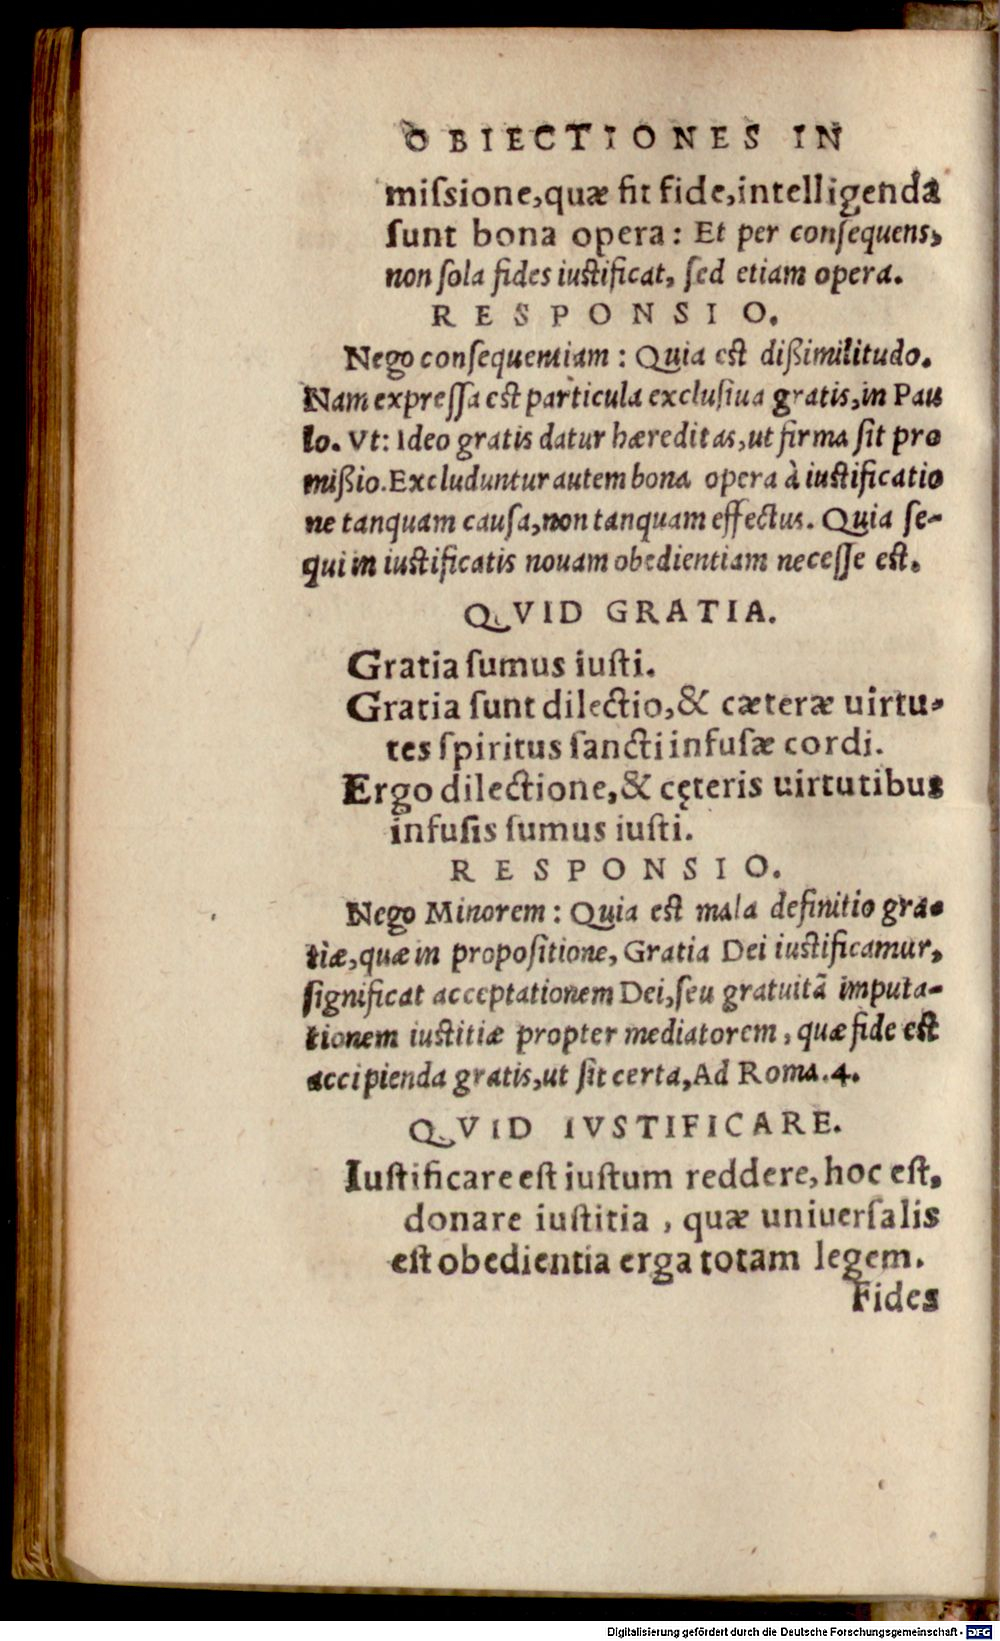 OBIECTIONES IN
miſsione,quæ fit fide,intelligenda
ſunt bona opera: Et per conſequens,
non ſola fides iuſtificat, ſed etiam opera.
RESPONSIO.
Nego conſequentiam: Quia eſt dißimilitudo.
Nam expreſſa eſt particula excluſiua gratis,in Pau
lo. Vt: Ideo gratis datur hæreditas,ut firma ſit pro
mißio.Excluduntur autem bona opera à iuſtificatio
ne tanquam cauſa,non tanquam effectus. Quia ſe-
qui in iuſtificatis nouam obedientiam neceſſe eſt.
QVID GRATIA.
Gratia ſumus iuſti.
Gratia ſunt dilectio,& cæteræ uirtu-
tes ſpiritus ſancti infuſæ cordi.
Ergo dilectione,& cęteris uirtutibus
infuſis ſumus iuſti.
RESPONSIO.
Nego Minorem: Quia eſt mala definitio gra-
tiæ,quæ in propoſitione, Gratia Dei iuſtificamur,
ſignificat acceptationem Dei,ſeu gratuitã imputa-
tionem iuſtitiæ propter mediatorem, quæ fide eſt
accipienda gratis,ut ſit certa,Ad Roma.4.
QVID IVSTIFICARE.
Iuſtificare eſt iuſtum reddere,hoc eſt,
donare iuſtitia, quæ uniuerſalis
eſt obedientia erga totam legem.
Fides
Digitalisierung gefördert durch die Deutsche Forschungsgemeinschaft - DFG